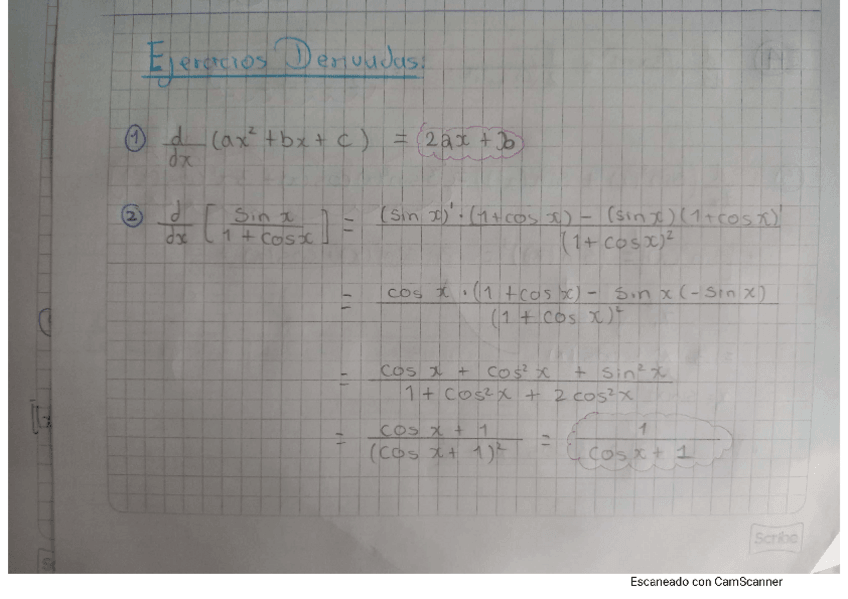 Ejercicios Derivadas:
① d/dx (ax² + bx + c) = 2ax + b
② d/dx [sin x / 1 + cos x] = (sin x)' · (1 + cos x) - (sin x)(1 + cos x)' / (1 + cos x)²
= cos x · (1 + cos x) - sin x (- sin x) / (1 + cos x)²
= cos x + cos² x + sin² x / 1 + cos² x + 2 cos² x
= cos x + 1 / (cos x + 1)² = 1 / cos x + 1
Scribe
Escaneado con CamScanner